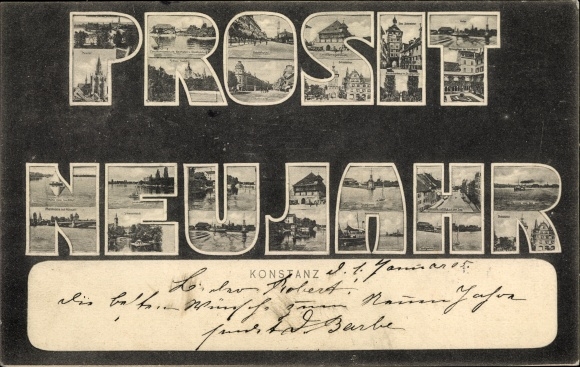 PROSIT
NEUJAHR
KONSTANZ d. 1. Januar 05.
Lieber Robert!
die besten Wünsche zum Neuen Jahre
sendet D. Barbe